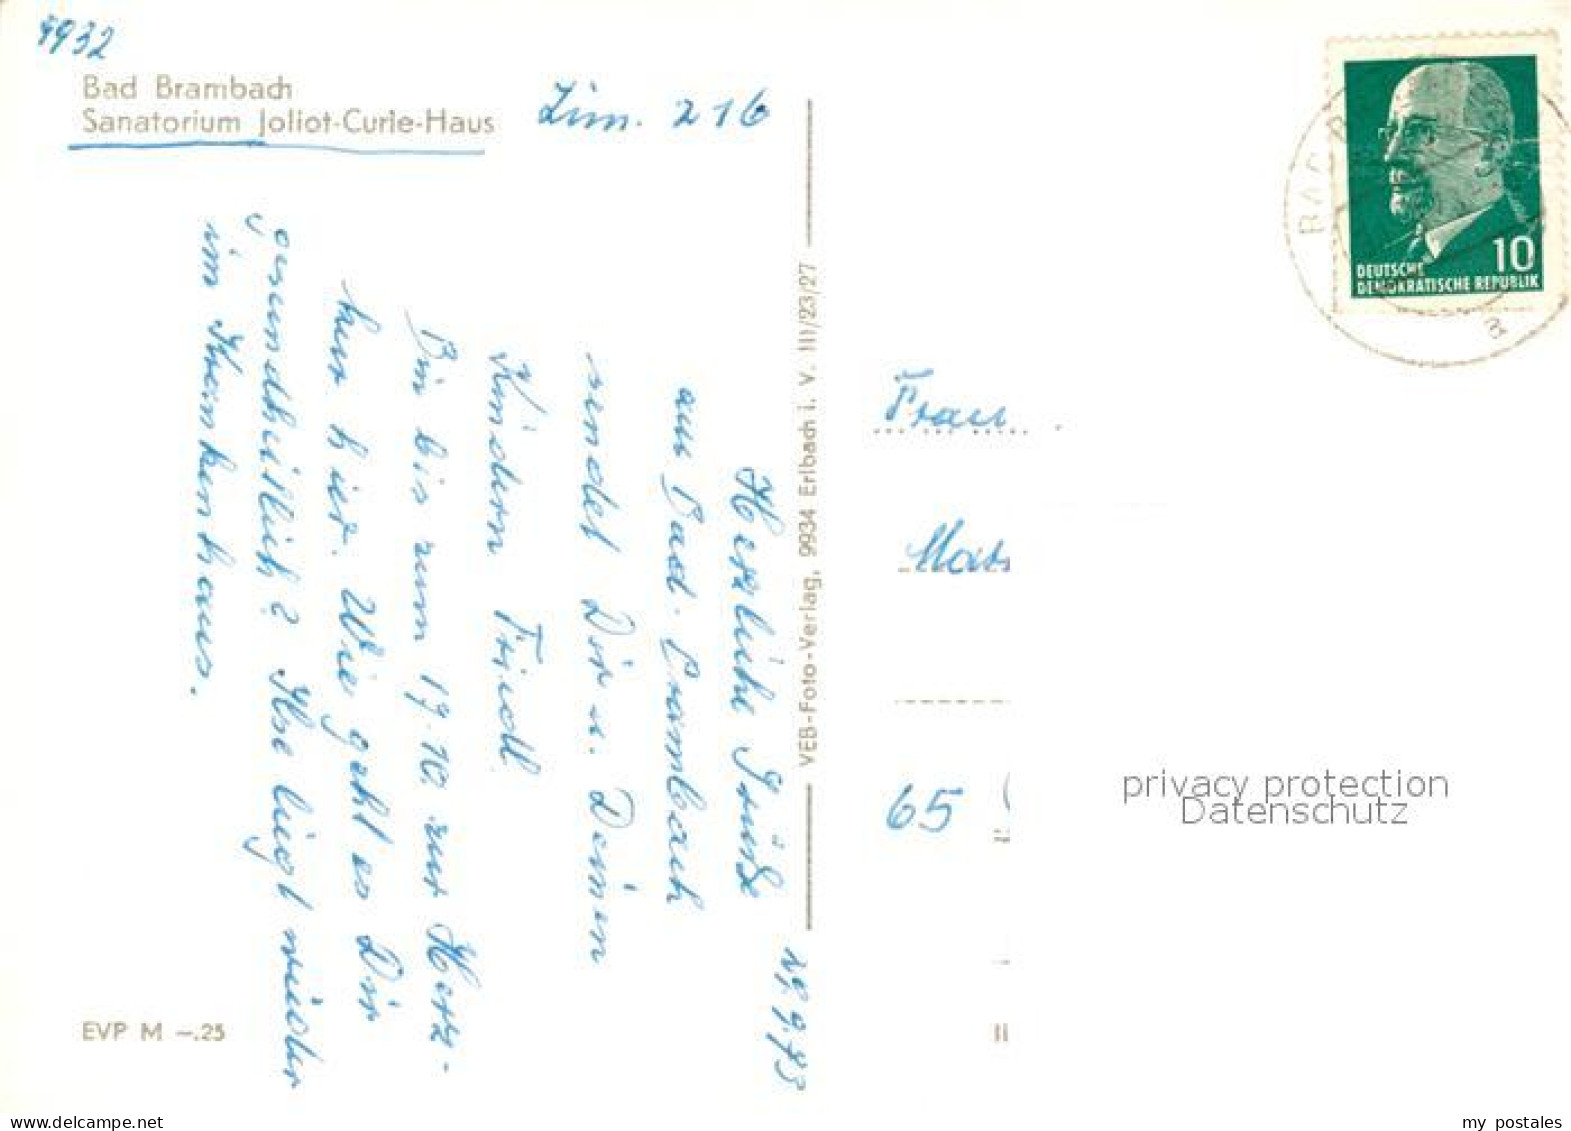 9932
Bad Brambach
Sanatorium Joliot-Curie-Haus
Zim. 216
29.9.73
Herzliche Grüße
aus Bad-Brambach
sendet Dir u. Deinen
Kindern Friedl.
Bin bis zum 17.10. zur Herz-
kur hier. Wie geht es Dir
gesundheitlich? Ilse liegt wieder
im Krankenhaus.
EVP M –.25
VEB-Foto-Verlag, 9934 Erlbach i. V. III/23/27
10
DEUTSCHE
DEMOKRATISCHE REPUBLIK
BAD
a
Frau
65
privacy protection
Datenschutz
www.delcampe.net
my_postales